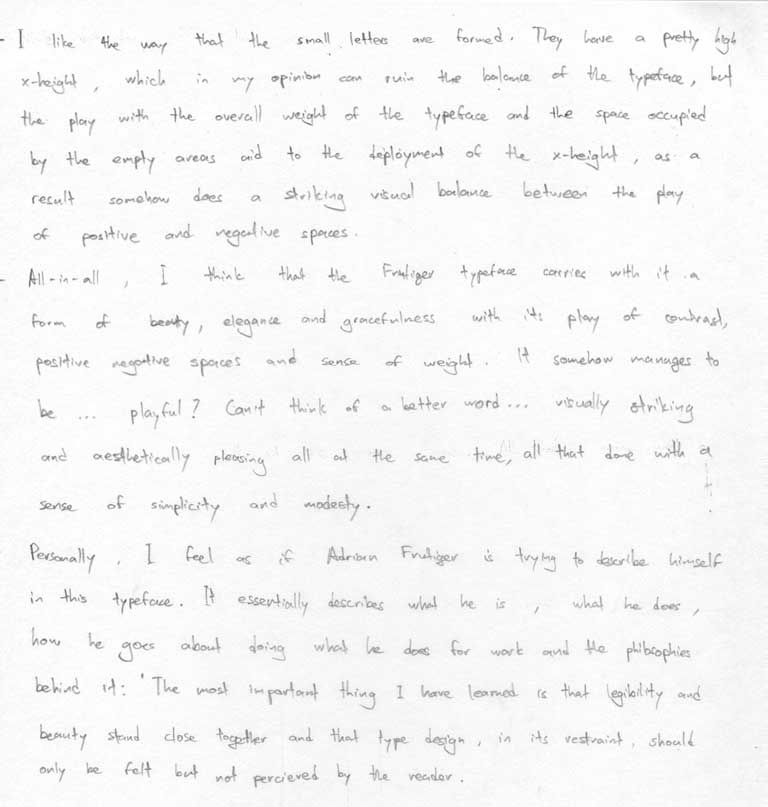 - I like the way that the small letters are formed. They have a pretty high
x-height, which in my opinion can ruin the balance of the typeface, but
the play with the overall weight of the typeface and the space occupied
by the empty areas aid to the deployment of the x-height, as a
result somehow does a striking visual balance between the play
of positive and negative spaces.
- All-in-all, I think that the Frutiger typeface carries with it a
form of beauty, elegance and gracefulness with its play of contrast,
positive negative spaces and sense of weight. It somehow manages to
be ... playful? Can't think of a better word... visually striking
and aesthetically pleasing all at the same time, all that done with a
sense of simplicity and modesty.
Personally, I feel as if Adrian Frutiger is trying to describe himself
in this typeface. It essentially describes what he is, what he does,
how he goes about doing what he does for work and the philosophies
behind it: 'The most important thing I have learned is that legibility and
beauty stand close together and that type design, in its restraint, should
only be felt but not percieved by the reader.